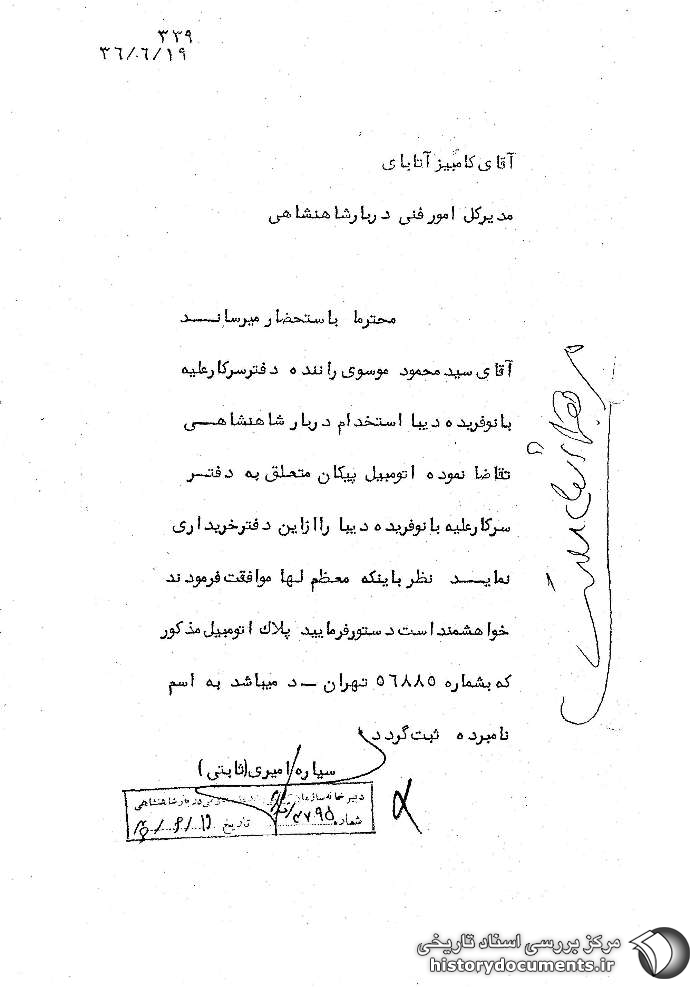 ۳۳۹
۳۶/۰۶/۱۹
آقای کامبیز آتابای
مدیرکل امور فنی دربار شاهنشاهی
محترما باستحضار میرسانـــد
آقای سید محمود موسوی راننده دفتر سرکارعلیه
بانو فریده دیبا استخدام دربار شاهنشاهـــی
تقاضا نموده اتومبیل پیکان متعلق به دفتـــر
سرکارعلیه بانو فریده دیبا را از این دفتر خریداری
نمایـــد نظر باینکه معظم لها موافقت فرمودند
خواهشمند است دستور فرمایید پلاک اتومبیل مذکور
که بشماره ۵۶۸۸۵ تهران ـ د میباشد به اسم
نامبرده ثبت گردد
سیاره امیری (ثابتی)
دبیرخانه سازمان دربار شاهنشاهی
شماره تاریخ
مرکز بررسی اسناد تاریخی
historydocuments.ir